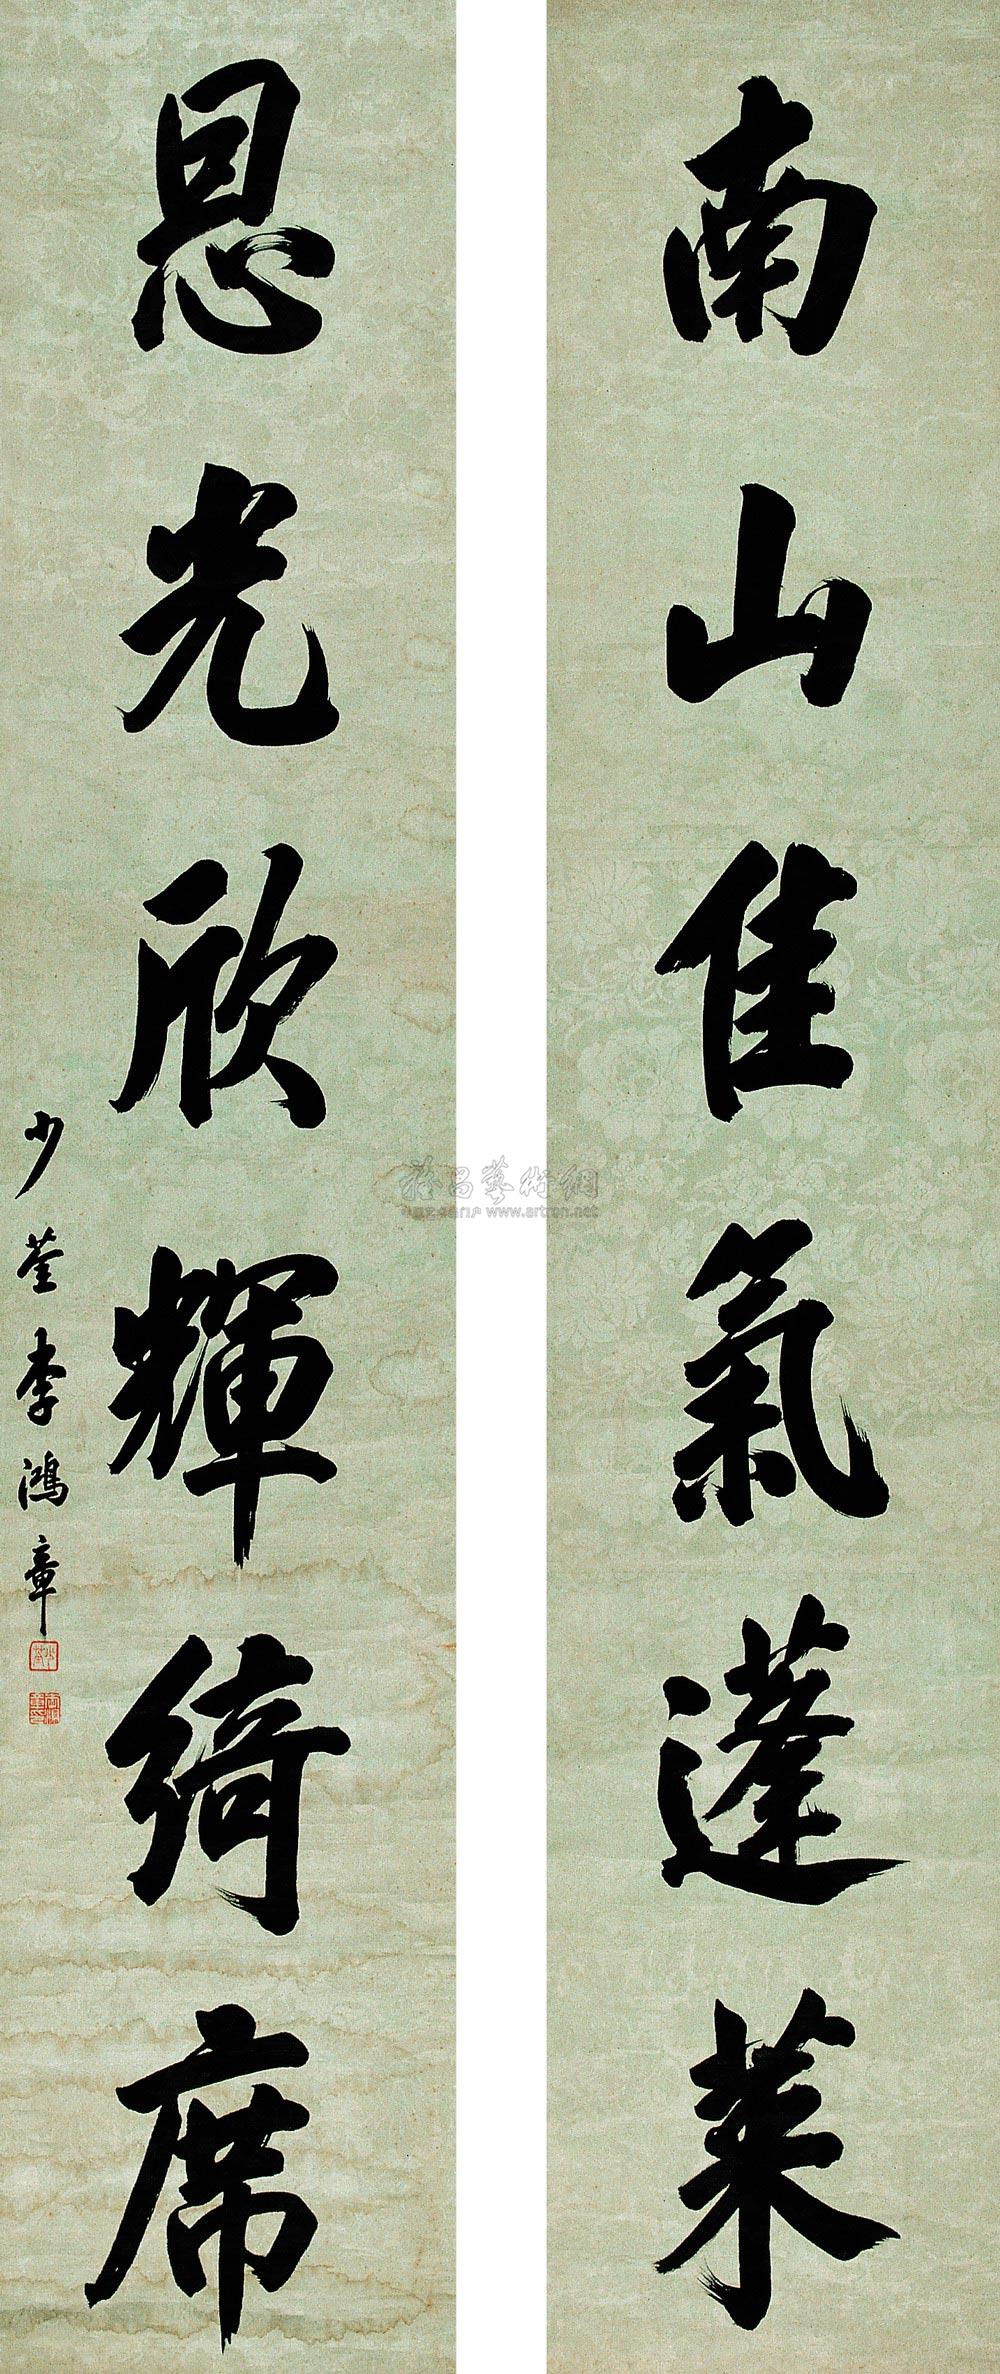 南山佳氣蓬萊
恩光欣輝綺席
少荃李鴻章
www.artron.net